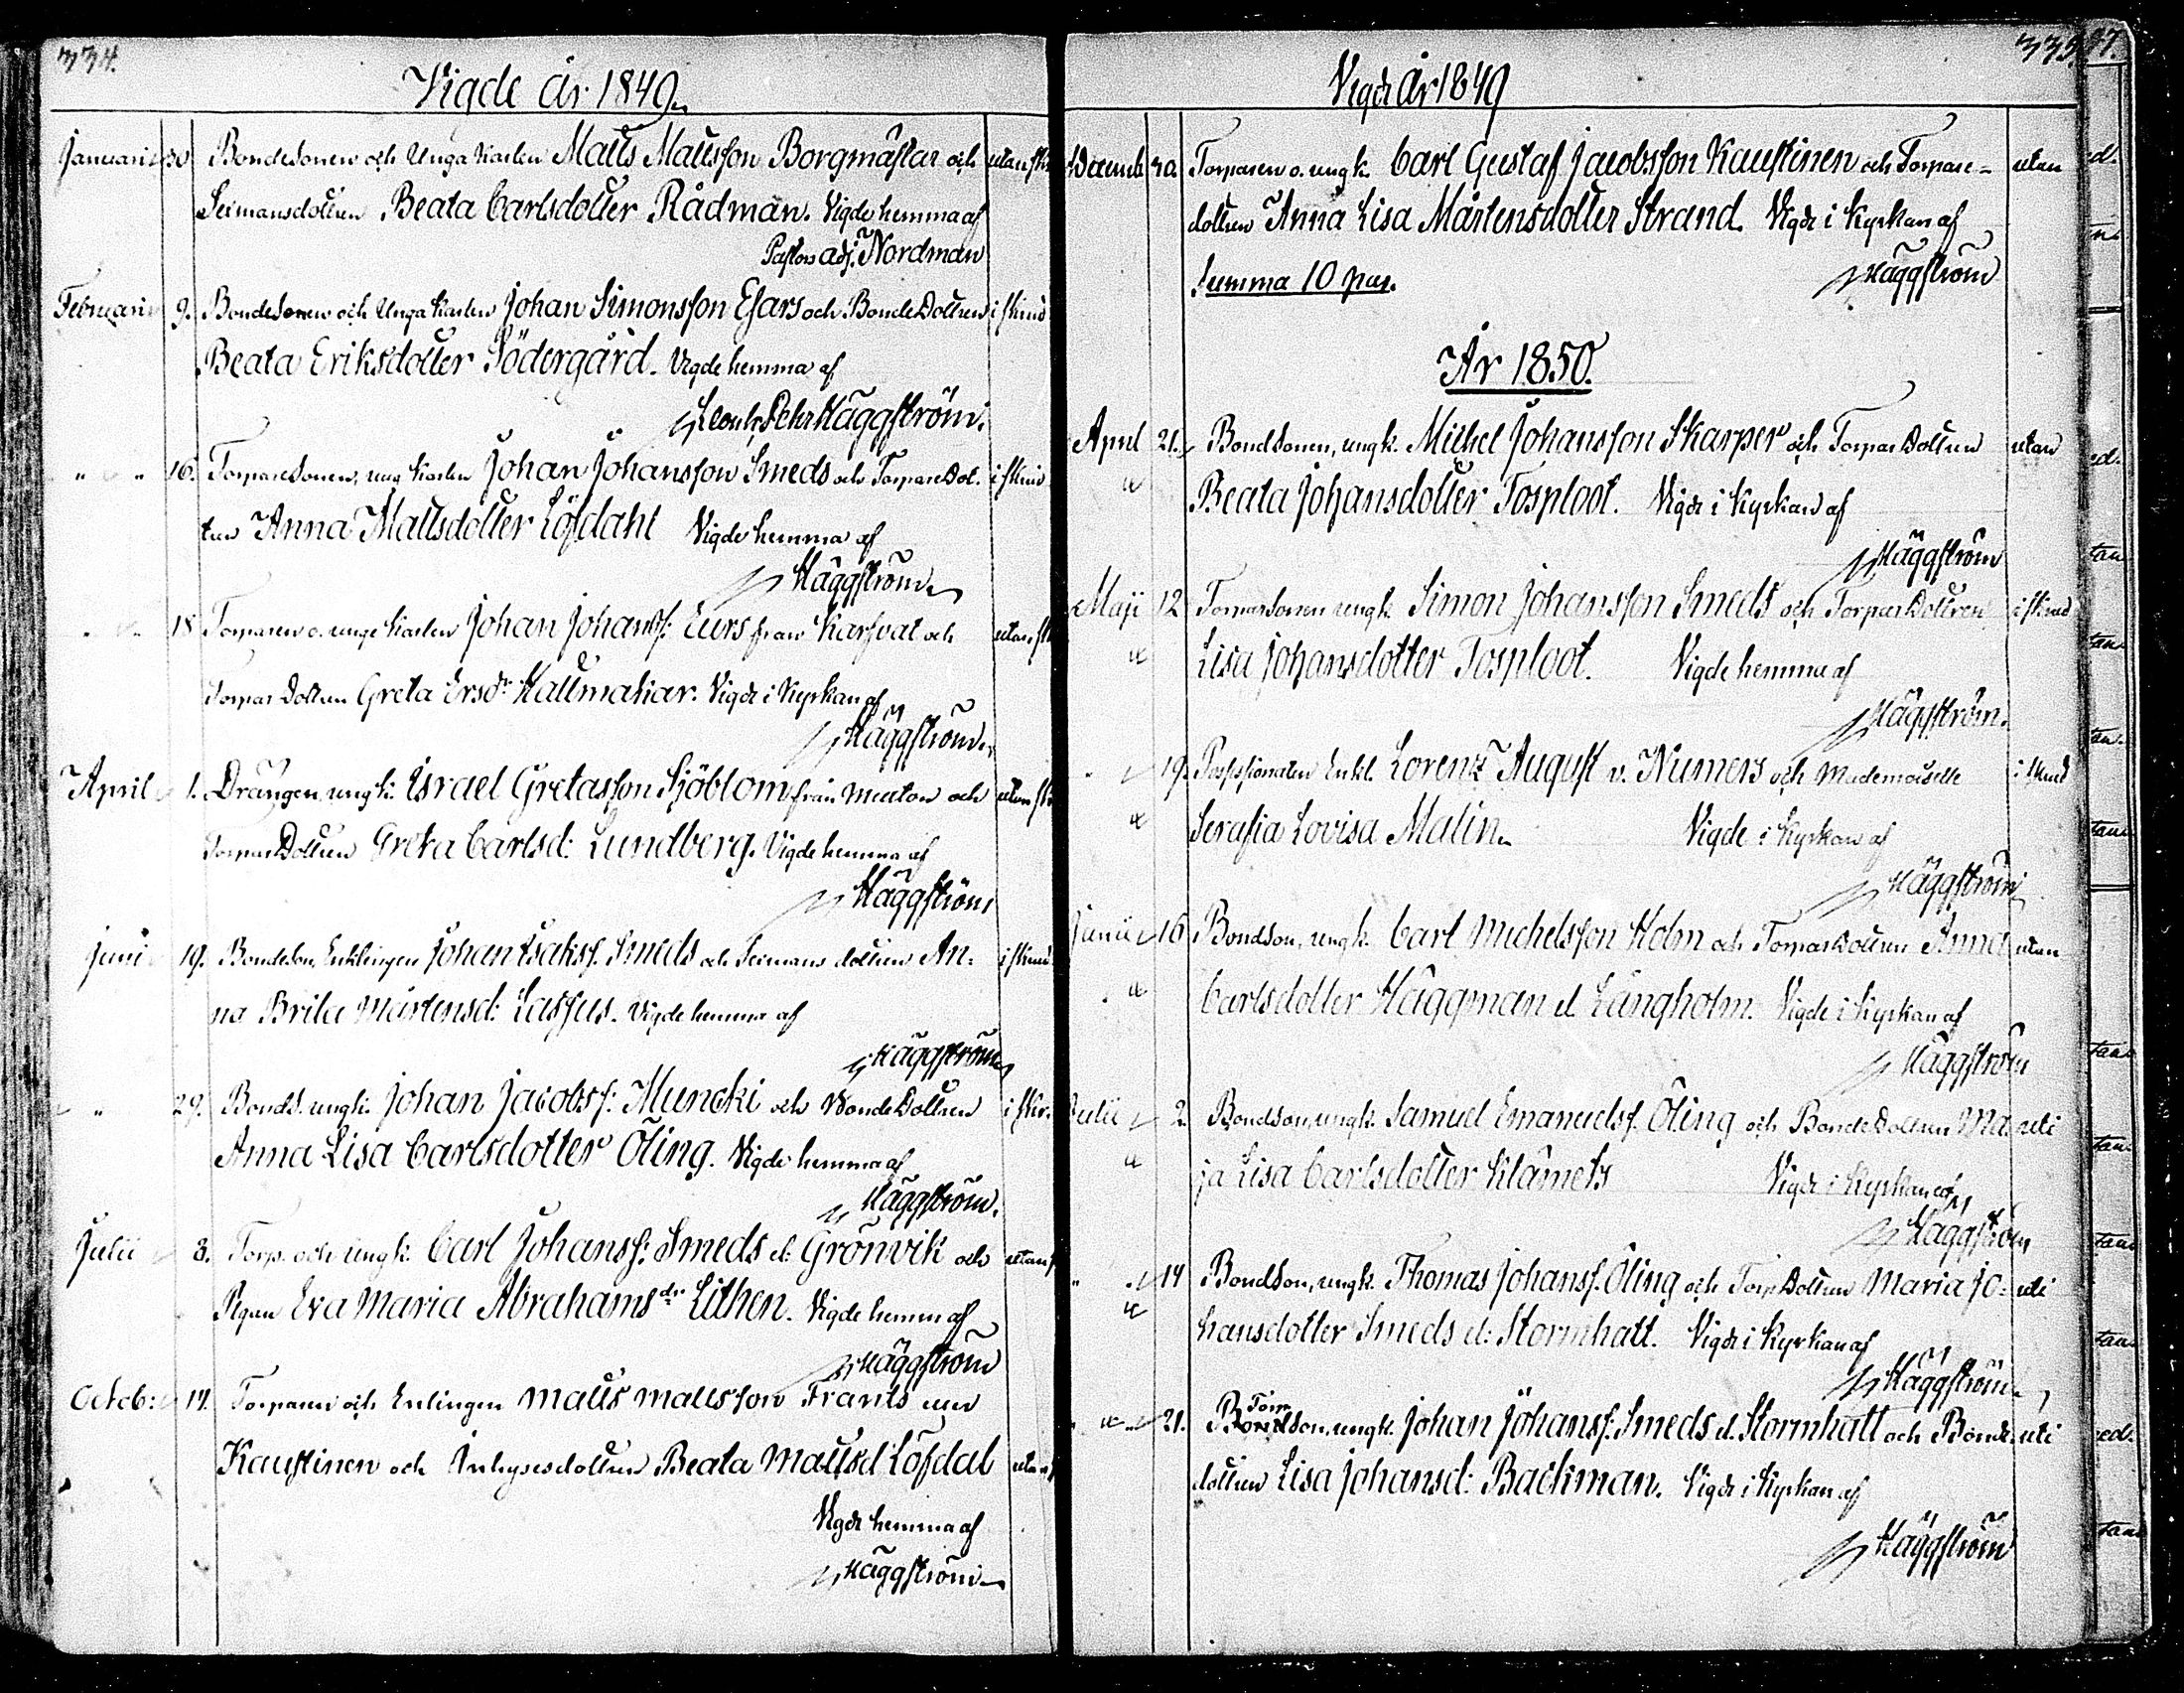 334.
Vigde År 1849.
Januari 30. Bondesonen och Unga Karlen Matts Mattsson Borgmästar och utan sk
Seimansdottren Beata Carlsdotter Rådman. Vigde hemma af
Pastors adj. Nordman
Februari 9. Bondesonen och Unga Karlen Johan Simonsson Esars och Bonde Dottren i skind
Beata Eriksdotter Södergård. Vigde hemma af
Pehr Häggström.
" " 16. Torparesonen, ung Karlen Johan Johansson Smeds och Torpare Dot- i skind
tren Anna Mattsdotter Löfdahl Vigde hemma af
Häggström
" " 18 Torparen o. unge Karlen Johan Johanss: Eurs från Karfvat och utan sk
Torpar Dottren Greta Ersdr Kattmakar. Vigde i Kyrkan af
Häggström
April 1. Drängen, ungk. Israel Gretasson Sjöblom från och utan sk
Torpar Dottren Greta Carlsd: Lundberg. Vigde hemma af
Häggström
Juni 19. Bondeson, Enklingen Johan Isakss. Smeds och Seimans dottren An-
i skind
na Brita Mårtensd: Lassus. Vigde hemma af
Häggström
" 29. Bonds. ungk. Johan Jacobss: Muncki och Bonde Dottren i sk.
Anna Lisa Carlsdotter Öling. Vigde hemma af
Häggström.
Julii 3. Torp. och ungk. Carl Johanss: Smeds el: Grönvik och utan
Pigan Eva Maria Abrahamsdr Lithen. Vigde hemma af
Häggström
Octob: 14. Torparen och Enklingen Matts Mattsson Frants
Kaustinen och Inhysesdottren Beata Mattsd Löfdal utan
Vigde hemma af
Häggström
335.
37.
Vigde År 1849
Decemb 30. Torparen o. ungk. Carl Gustaf Jacobsson Kaustinen och Torpare- utan
dottren Anna Lisa Mårtensdotter Strand. Vigde i Kyrkan af
Häggström
Summa 10 par.
År 1850.
April 21. Bondsonen, ungk. Michel Johansson Skarper och Torpar Dottren utan
Beata Johansdotter Tosploot. Vigde i Kyrkan af
Häggström
Maji 12 Torparsonen ungk. Simon Johansson Smeds och Torpar Dottren i skind
Lisa Johansdotter Tosploot. Vigde hemma af
Häggström.
" 19. Enkl. Lorenz August v. Numers och Mademoiselle i skind
Serafia Lovisa Malin. Vigde i Kyrkan af
Häggström
Junii 16 Bondson, ungk. Carl Michelsson Holm och Torpar Dottren Anna utan
Carlsdotter Häggman el Långholm. Vigde i Kyrkan af
Häggström
Julii 2. Bondson, ungk. Samuel Emanuelss. Öling och Bonde Dottren Ma- uti
ja Lisa Carlsdotter Klåmets Vigde i Kyrkan af
Häggström
" 14 Bondson, ungk. Thomas Johanss. Öling och Torp Dottren Maria Jo- uti
hansdotter Smeds el: Stormhatt. Vigde i Kyrkan af
Häggström
Torp
" 21. Bondson, ungk. Johan Johanss: Smeds el. Stormhatt och Bonde uti
dottren Lisa Johansd: Backman. Vigde i Kyrkan af
Häggström